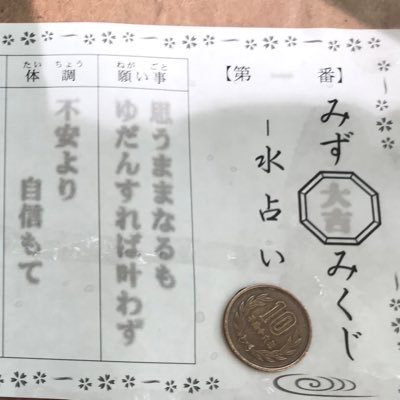 【第　番】
みず大吉みくじ
ー水占い
ねが ごと
願い事
思うままなるも
ゆだんすれば叶わず
たい ちょう
体調
不安より
自信もて
10